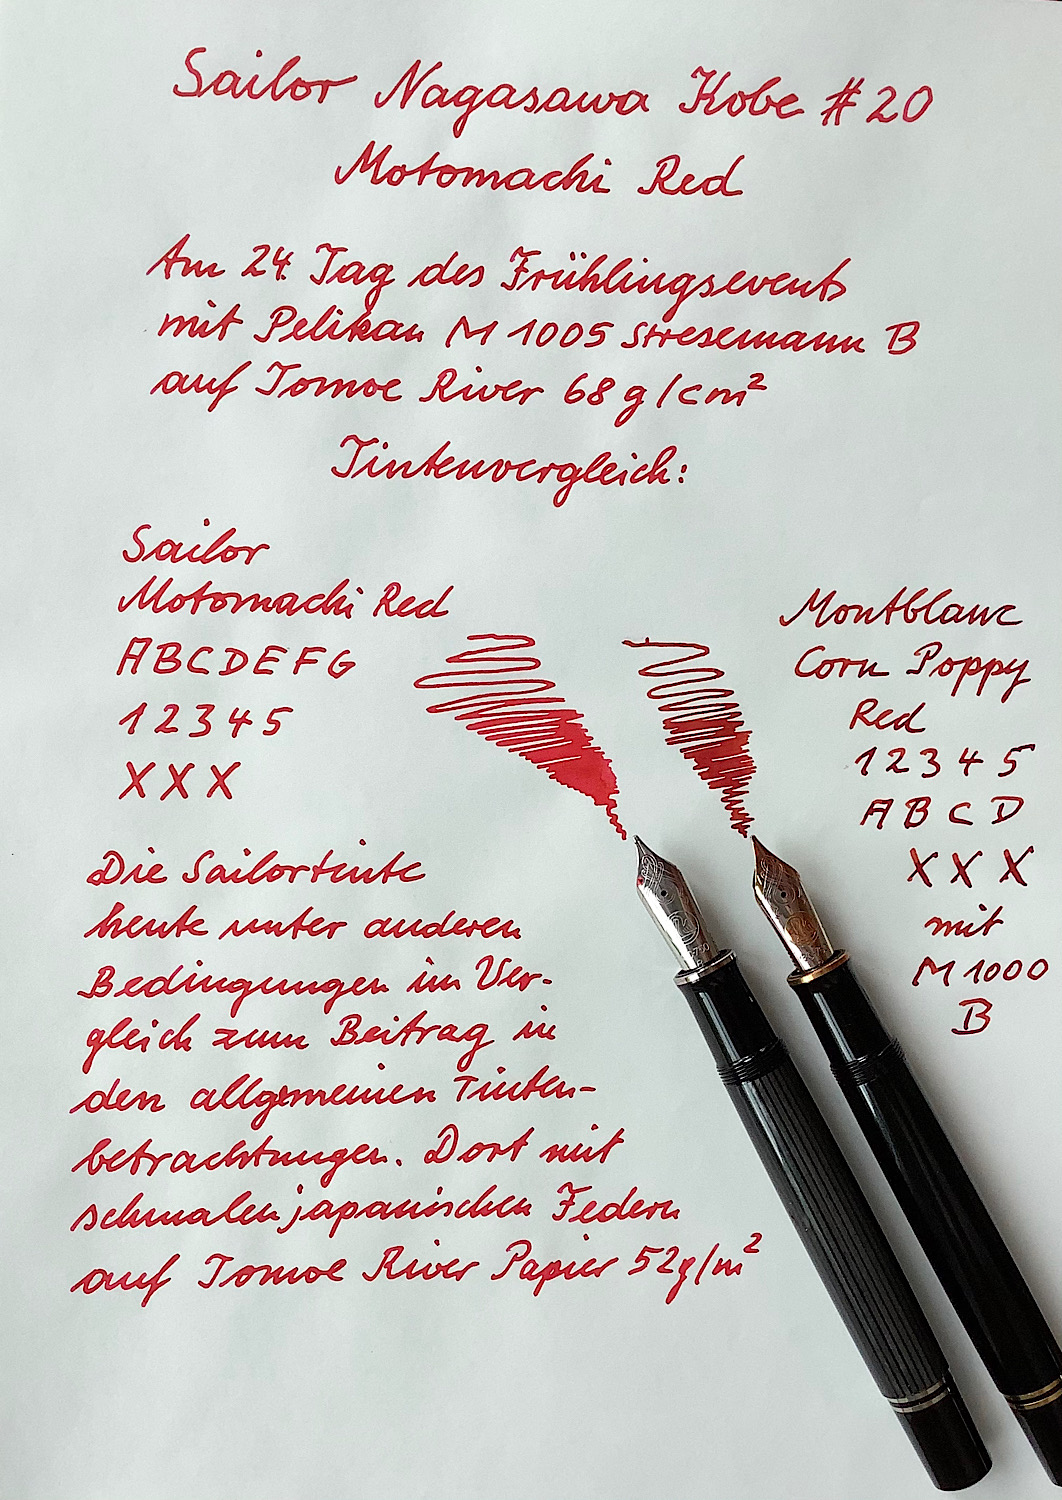 Sailor Nagasawa Kobe #20
Motomachi Red
Am 24. Tag des Frühlingsevents
mit Pelikan M 1005 Stresemann B
auf Tomoe River 68 g/cm²
Tintenvergleich:
Sailor
Motomachi Red
ABCDEFG
12345
XXX
Montblanc
Corn Poppy
Red
12345
ABCD
XXX
mit
M1000
B
Die Sailortinte
heute unter anderen
Bedingungen im Ver-
gleich zum Beitrag in
den allgemeinen Tinten-
betrachtungen. Dort mit
schmalen japanischen Federn
auf Tomoe River Papier 52g/m²